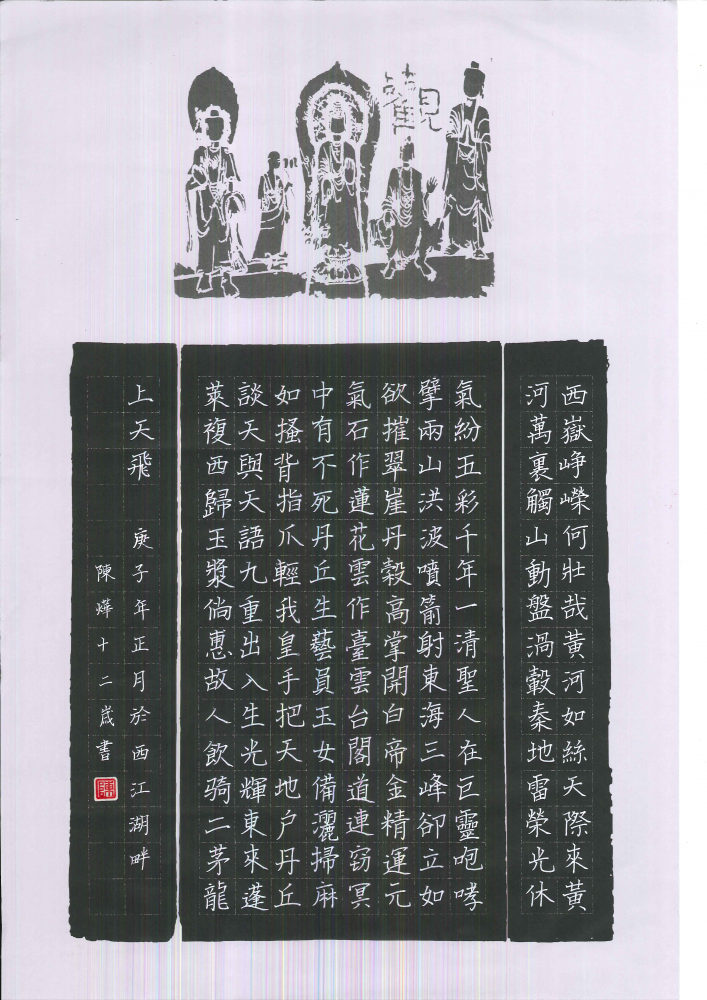 觀
西嶽崢嶸何壯哉黃河如絲天際來黃
河萬裏觸山動盤渦轂秦地雷榮光休
氣紛五彩千年一清聖人在巨靈咆哮
擘兩山洪波噴箭射東海三峰卻立如
欲摧翠崖丹穀高掌開白帝金精運元
氣石作蓮花雲作臺雲台閣道連窈冥
中有不死丹丘生藝員玉女備灑掃麻
如搔背指爪輕我皇手把天地户丹丘
談天與天語九重出入生光輝東來蓬
萊複西歸玉漿倘惠故人飲骑二茅龍
上天飛 庚子年正月於西江湖畔
陳燁十二歲書